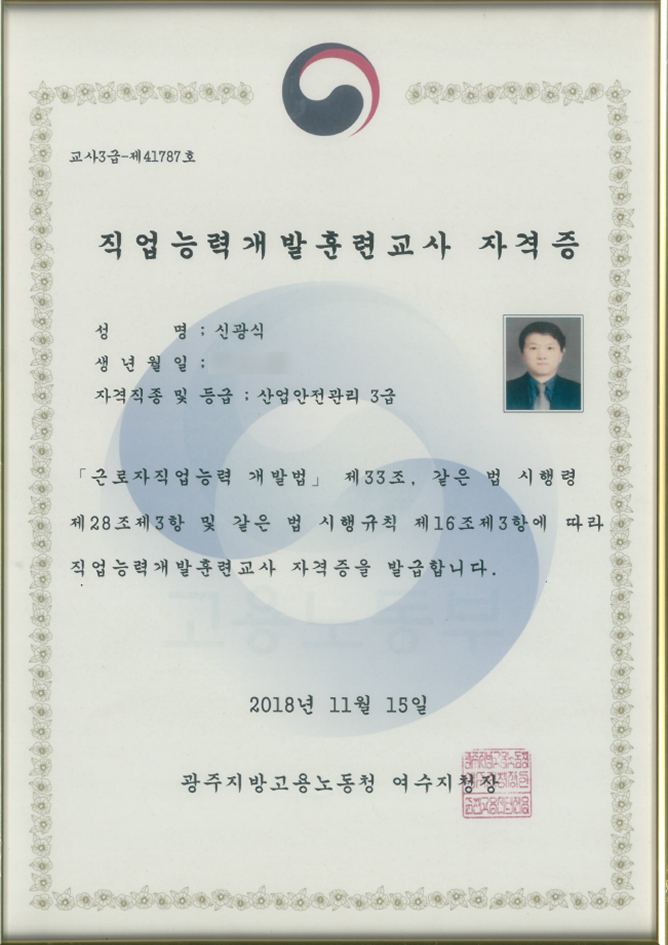 교사3급-제41787호
직업능력개발훈련교사 자격증
성 명 : 신광식
생 년 월 일 :
자격직종 및 등급 : 산업안전관리 3급
「근로자직업능력 개발법」 제33조, 같은 법 시행령
제28조제3항 및 같은 법 시행규칙 제16조제3항에 따라
직업능력개발훈련교사 자격증을 발급합니다.
고용노동부
2018년 11월 15일
광주지방고용노동청 여수지청장